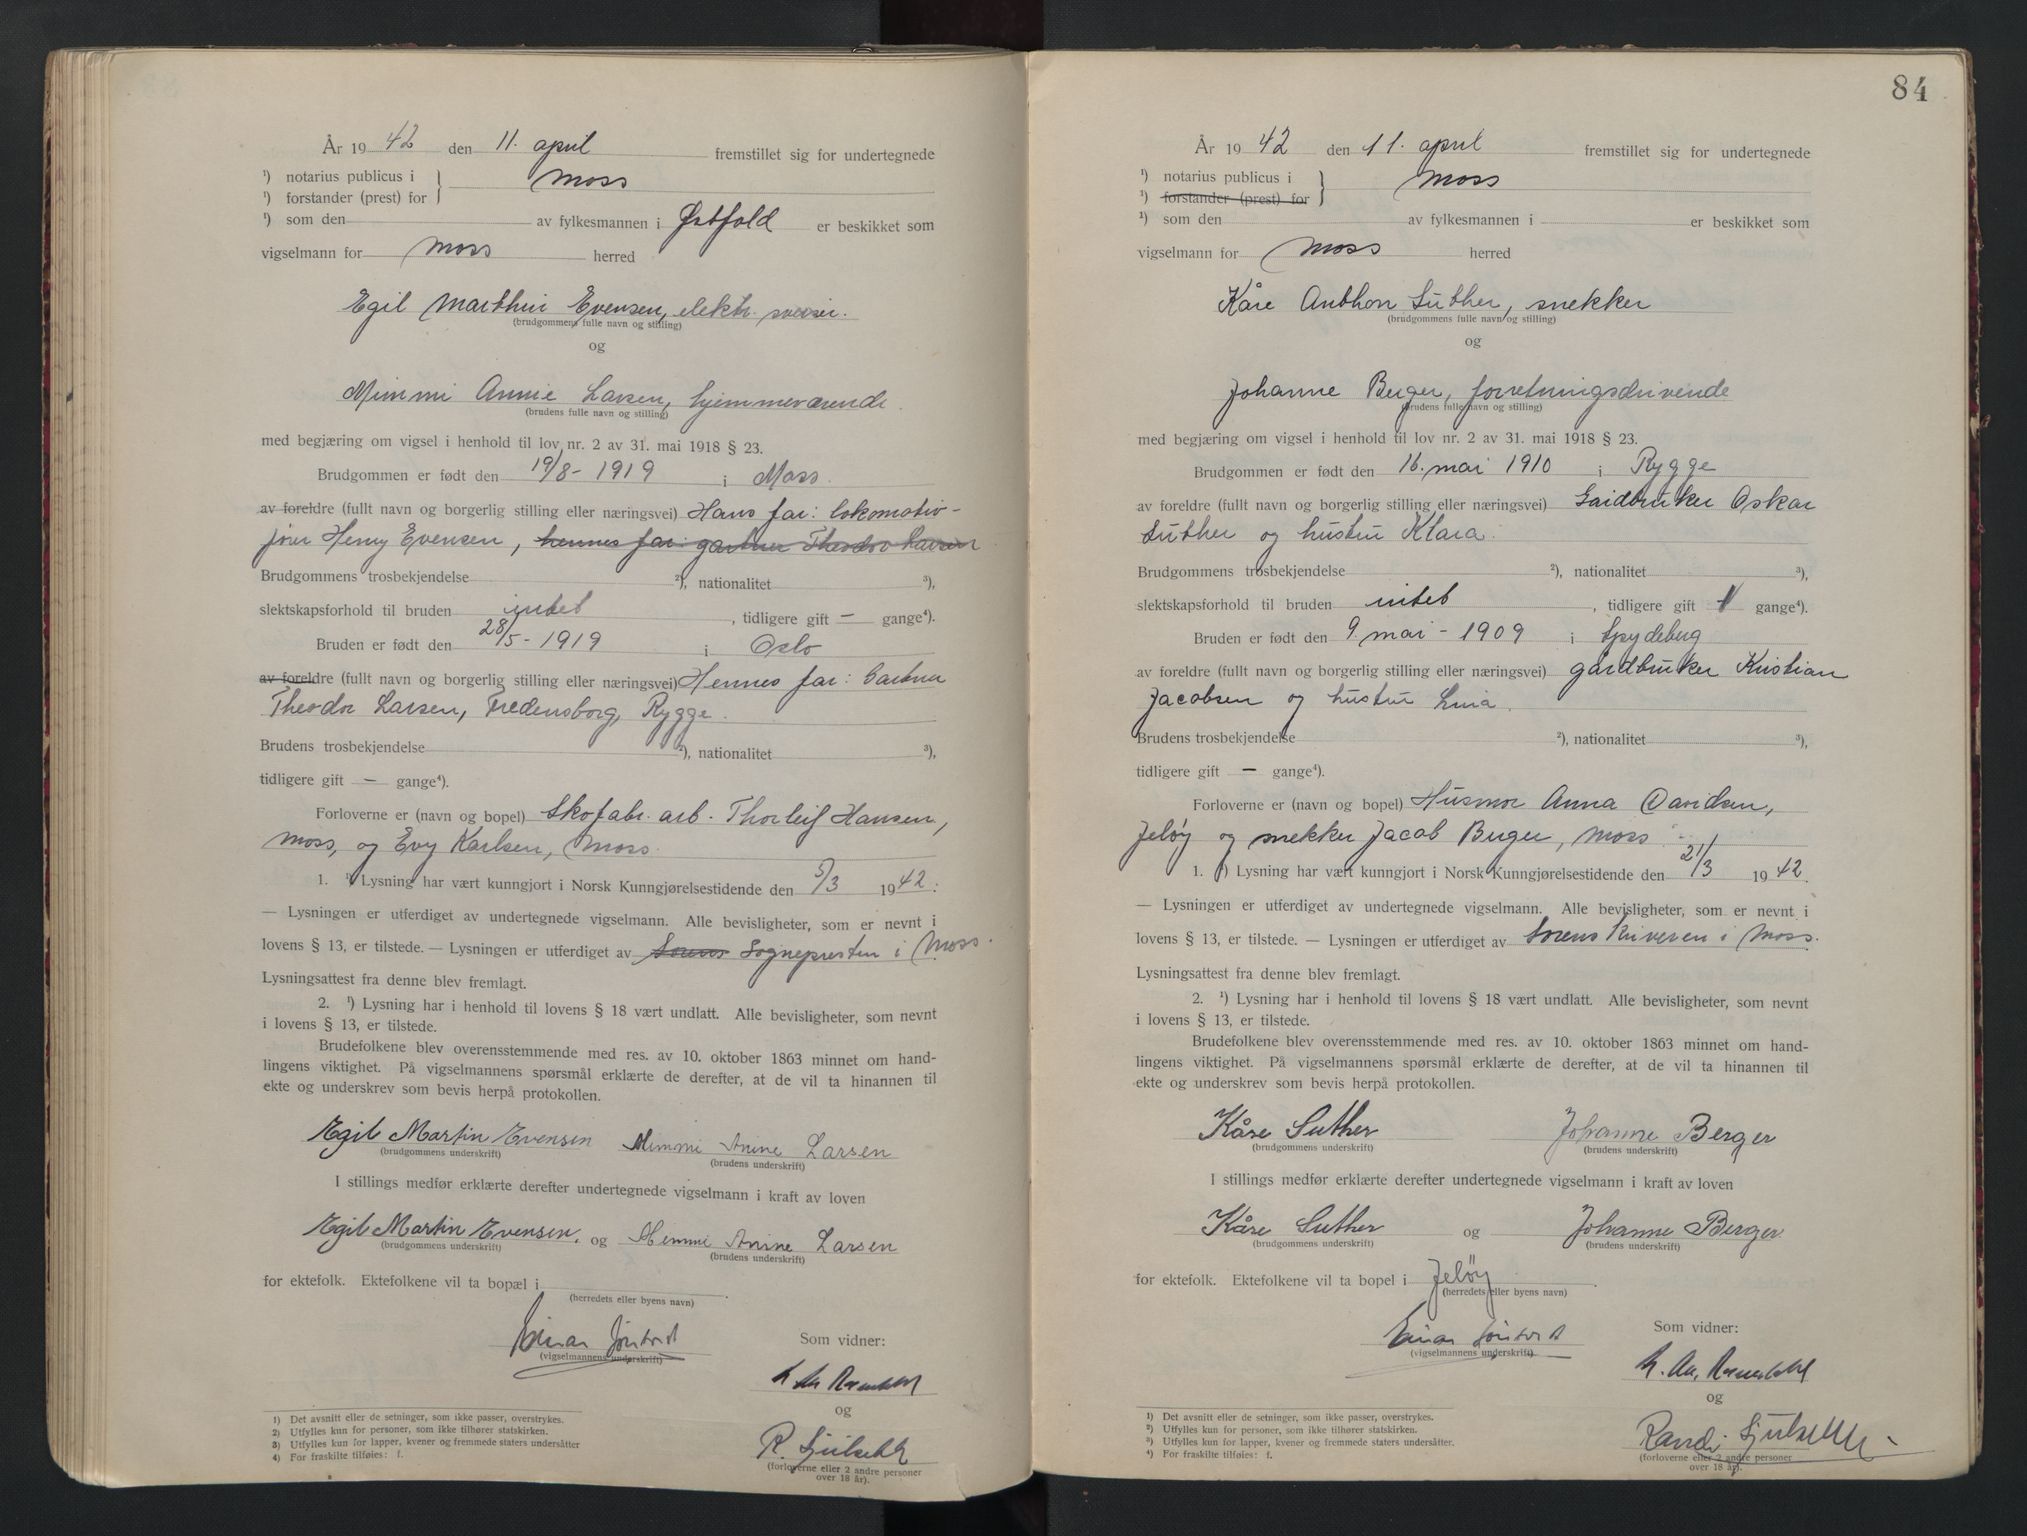 År 19 42 den 11. april fremstillet sig for undertegnede
¹) notarius publicus i
Moss
¹) forstander (prest) for
¹) som den av fylkesmannen i Østfold er beskikket som
vigselmann for Moss herred
Egil Marthin Evensen, elektr. sveiser.
(brudgommens fulle navn og stilling)
og
Mimmi Annie Larsen, hjemmeværende.
(brudens fulle navn og stilling)
med begjæring om vigsel i henhold til lov nr. 2 av 31. mai 1918 § 23.
Brudgommen er født den 19/8 - 1919 i Moss.
av foreldre (fullt navn og borgerlig stilling eller næringsvei) Hans far: lokomotiv-
fører Henry Evensen, hennes far: gartner Theodor Larsen
Brudgommens trosbekjendelse ²), nationalitet ³),
slektskapsforhold til bruden intet, tidligere gift — gange⁴).
Bruden er født den 28/5 - 1919 i Oslo
av foreldre (fullt navn og borgerlig stilling eller næringsvei) Hennes far: Gartner
Theodor Larsen, Fredensborg, Rygge.
Brudens trosbekjendelse ²), nationalitet ³),
tidligere gift — gange⁴).
Forloverne er (navn og bopel) Skofabr. arb. Thorleif Hansen,
Moss, og Evy Karlsen, Moss.
1. ¹) Lysning har vært kunngjort i Norsk Kunngjørelsestidende den 5/3 19 42:
— Lysningen er utferdiget av undertegnede vigselmann. Alle bevisligheter, som er nevnt i
lovens § 13, er tilstede. — Lysningen er utferdiget av Sorens Sognepresten i Moss.
Lysningsattest fra denne blev fremlagt.
2. ¹) Lysning har i henhold til lovens § 18 vært undlatt. Alle bevisligheter, som nevnt
i lovens § 13, er tilstede.
Brudefolkene blev overensstemmende med res. av 10. oktober 1863 minnet om hand-
lingens viktighet. På vigselmannens spørsmål erklærte de derefter, at de vil ta hinannen til
ekte og underskrev som bevis herpå protokollen.
Egil Martin Evensen Mimmi Anine Larsen
(brudgommens underskrift) (brudens underskrift)
I stillings medfør erklærte derefter undertegnede vigselmann i kraft av loven
Egil Martin Evensen. og Mimmi Anine Larsen
(brudgommens underskrift) (brudens underskrift)
for ektefolk. Ektefolkene vil ta bopæl i .
(herredets eller byens navn)
Einar
Som vidner:
(vigselmannens underskrift)
og
R.
(forloverne eller 2 andre personer
over 18 år).
1) Det avsnitt eller de setninger, som ikke passer, overstrykes.
2) Utfylles kun for personer, som ikke tilhører statskirken.
3) Utfylles kun for lapper, kvener og fremmede staters undersåtter
4) For fraskilte tilføies: f.
84
År 19 42 den 11. april fremstillet sig for undertegnede
¹) notarius publicus i
Moss
¹) forstander (prest) for
¹) som den av fylkesmannen i er beskikket som
vigselmann for Moss herred
Kåre Anthon Suther, snekker
(brudgommens fulle navn og stilling)
og
Johanne Berger, forretningsdrivende
(brudens fulle navn og stilling)
med begjæring om vigsel i henhold til lov nr. 2 av 31. mai 1918 § 23.
Brudgommen er født den 16. mai 1910 i Rygge
av foreldre (fullt navn og borgerlig stilling eller næringsvei) Gårdbruker Oskar
Suther og hustru Klara.
Brudgommens trosbekjendelse ²), nationalitet ³),
slektskapsforhold til bruden intet, tidligere gift 1 gange⁴).
Bruden er født den 9. mai - 1909 i Spydeberg
av foreldre (fullt navn og borgerlig stilling eller næringsvei) gårdbruker Kristian
Jacobsen og hustru Lina.
Brudens trosbekjendelse ²), nationalitet ³),
tidligere gift — gange⁴).
Forloverne er (navn og bopel) Husmor Anna Davidsen,
Jeløy og snekker Jacob Berger, Moss.
1. ¹) Lysning har vært kunngjort i Norsk Kunngjørelsestidende den 21/3 19 42.
— Lysningen er utferdiget av undertegnede vigselmann. Alle bevisligheter, som er nevnt i
lovens § 13, er tilstede. — Lysningen er utferdiget av Sorenskriveren i Moss.
Lysningsattest fra denne blev fremlagt.
2. ¹) Lysning har i henhold til lovens § 18 vært undlatt. Alle bevisligheter, som nevnt
i lovens § 13, er tilstede.
Brudefolkene blev overensstemmende med res. av 10. oktober 1863 minnet om hand-
lingens viktighet. På vigselmannens spørsmål erklærte de derefter, at de vil ta hinannen til
ekte og underskrev som bevis herpå protokollen.
Kåre Suther Johanne Berger
(brudgommens underskrift) (brudens underskrift)
I stillings medfør erklærte derefter undertegnede vigselmann i kraft av loven
Kåre Suther og Johanne Berger
(brudgommens underskrift) (brudens underskrift)
for ektefolk. Ektefolkene vil ta bopel i Jeløy.
(herredets eller byens navn)
Einar
Som vidner:
(vigselmannens underskrift)
og
Randi
(forloverne eller 2 andre personer
over 18 år).
1) Det avsnitt eller de setninger, som ikke passer, overstrykes.
2) Utfylles kun for personer, som ikke tilhører statskirken.
3) Utfylles kun for lapper, kvener og fremmede staters undersåtter.
4) For fraskilte tilføies: f.